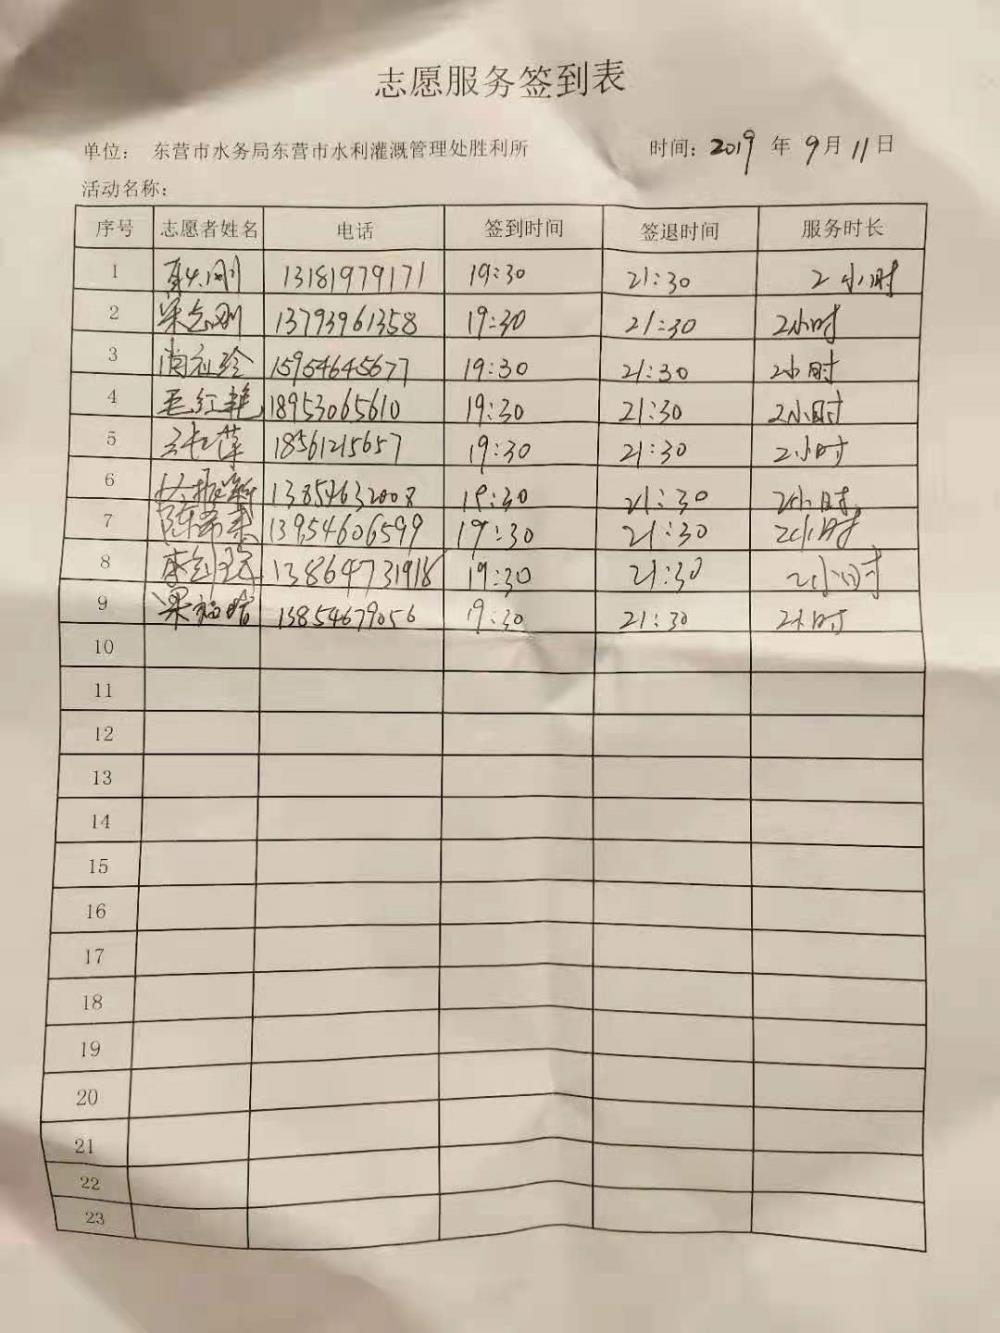 志愿服务签到表
单位： 东营市水务局东营市水利灌溉管理处胜利所 时间：2019 年 9月 11日
活动名称：
序号 志愿者姓名 电话 签到时间 签退时间 服务时长
1 13181979171 19:30 21:30 2小时
2 梁志刚 13793961358 19:30 21:30 2小时
3 尚祉玲 15954645677 19:30 21:30 2小时
4 毛红艳 18953065610 19:30 21:30 2小时
5 张萍 18561215657 19:30 21:30 2小时
6 13854632008 19:30 21:30 2小时
7 13954606599 19:30 21:30 2小时
8 13864731918 19:30 21:30 2小时
9 13854679056 9:30 21:30 2小时
10
11
12
13
14
15
16
17
18
19
20
21
22
23